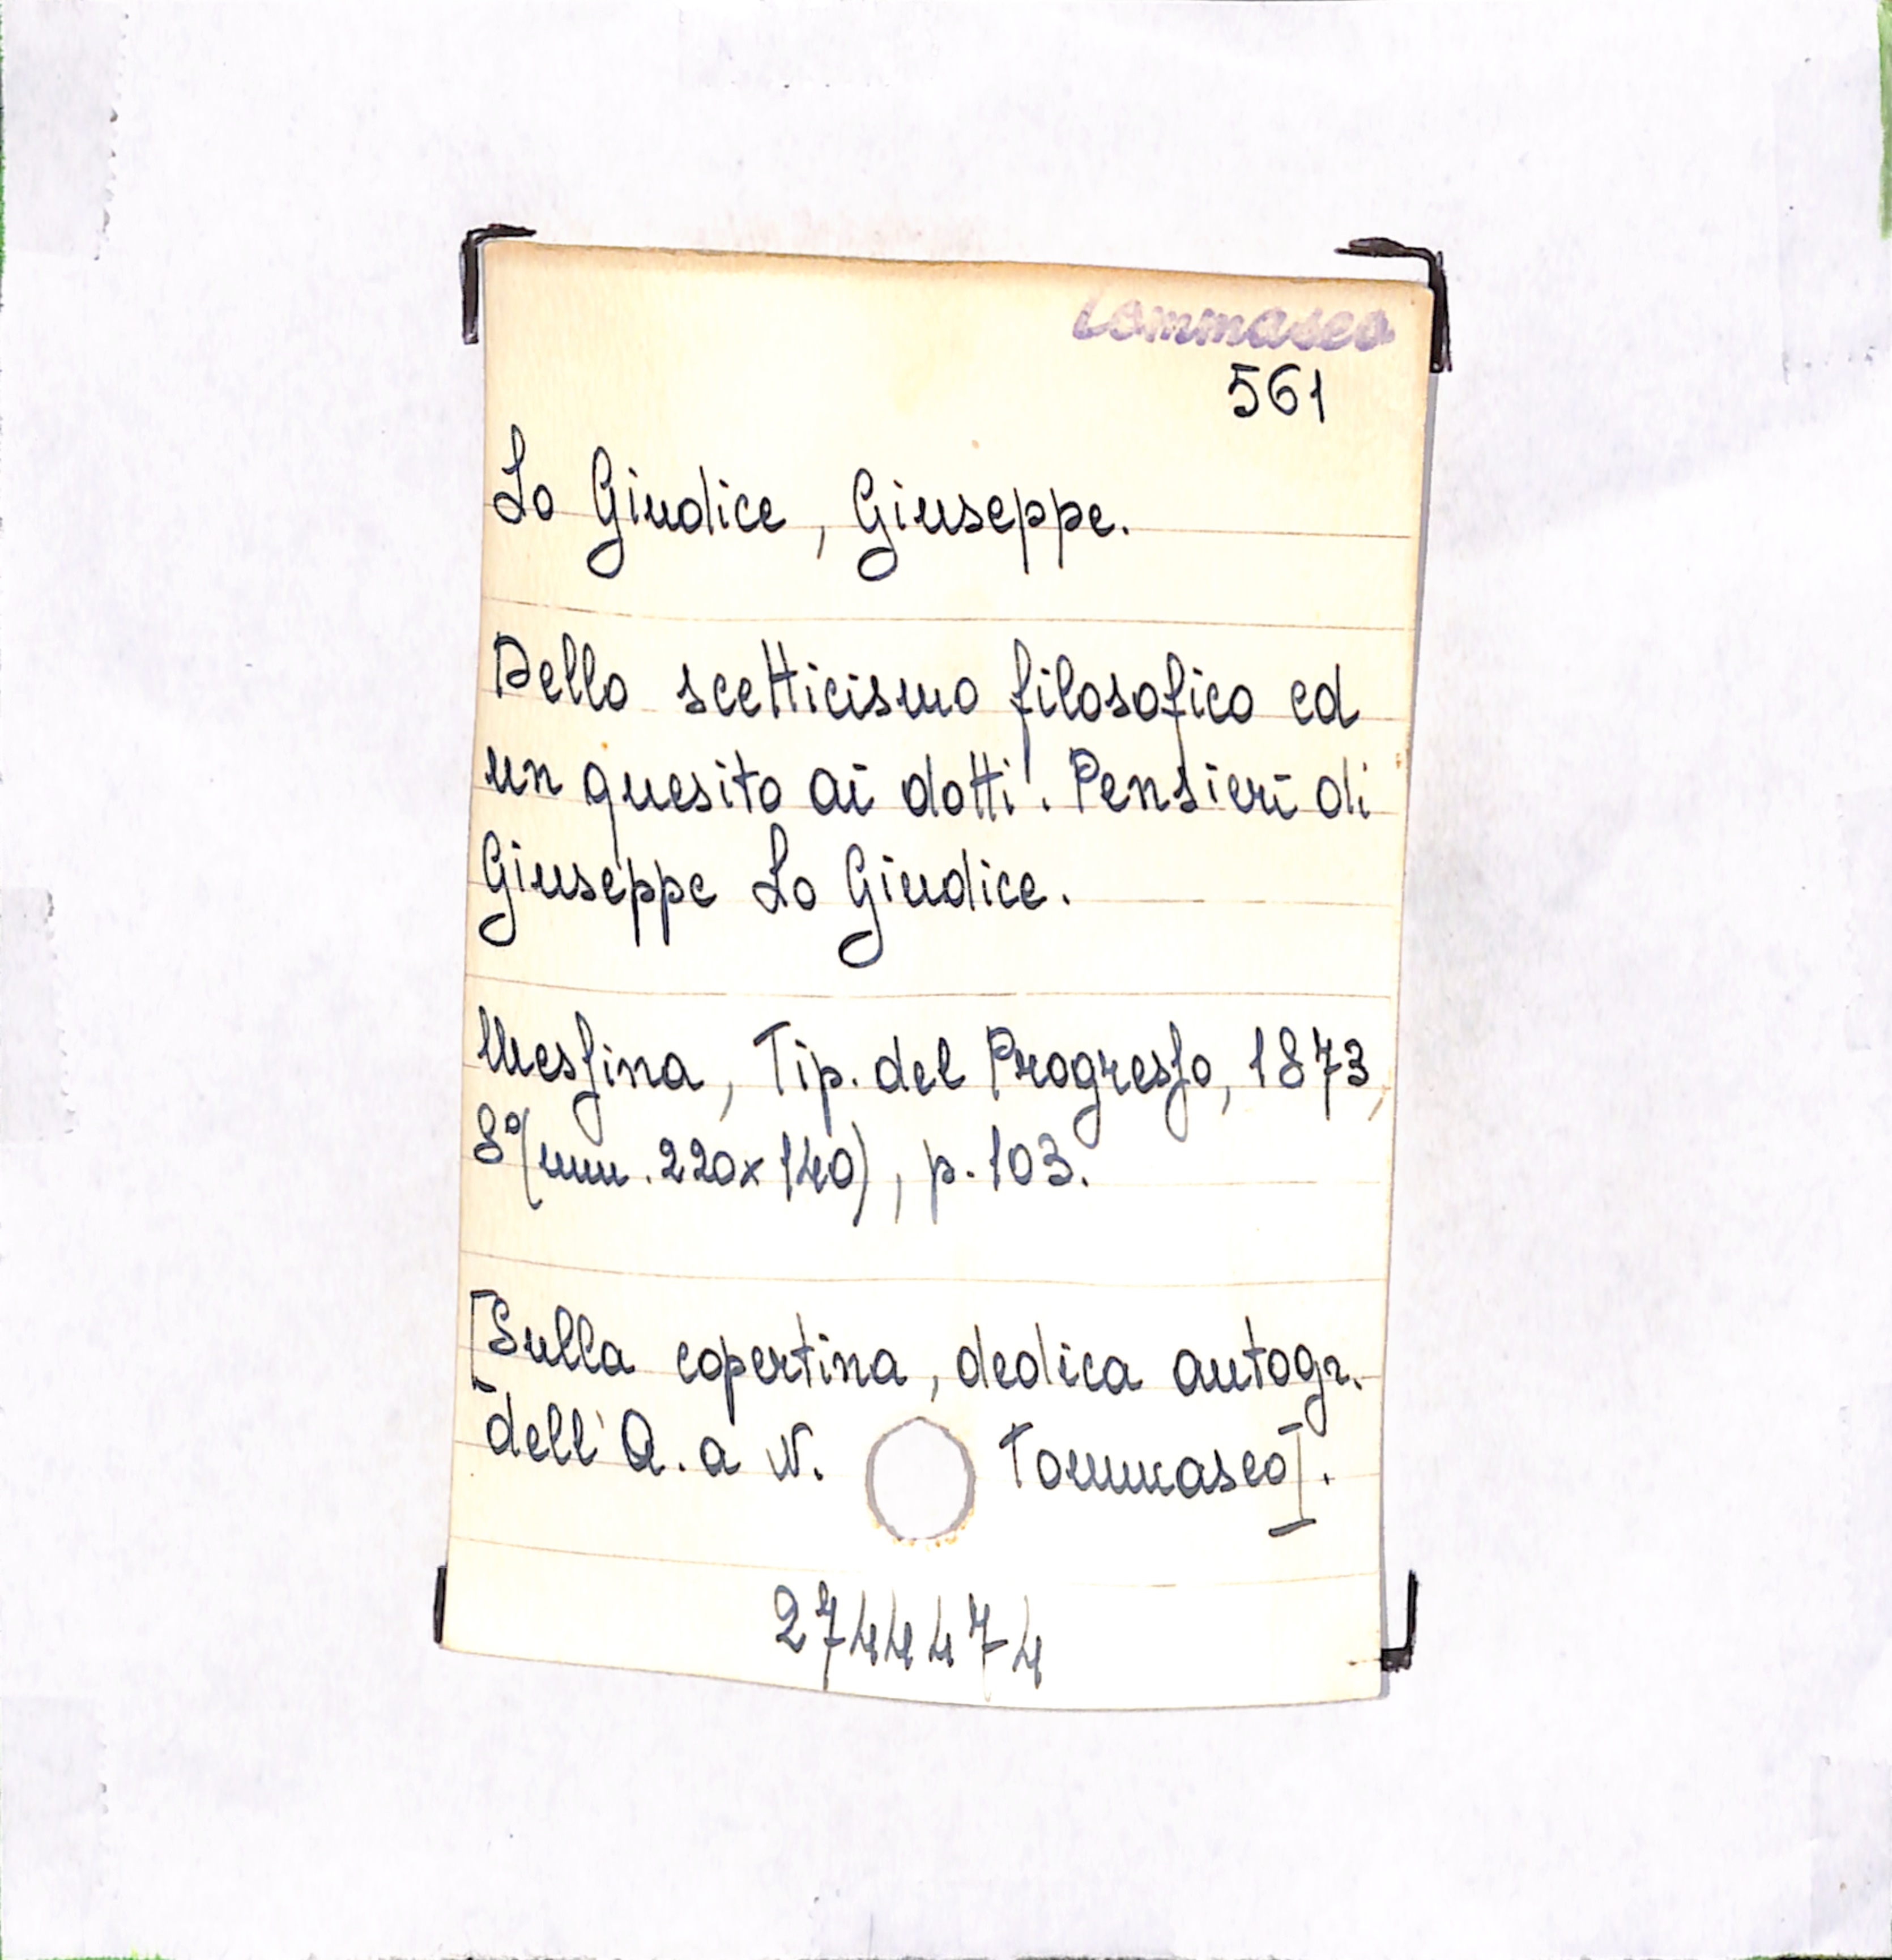 Tommaseo
561
Lo Giudice, Giuseppe.
Dello scetticismo filosofico ed
un quesito ai dotti. Pensieri di
Giuseppe Lo Giudice.
Messina, Tip. del Progresso, 1873,
8° (mm. 220x140), p. 103.
[Sulla copertina, dedica autogr.
dell'A. a N. Tommaseo].
2744474